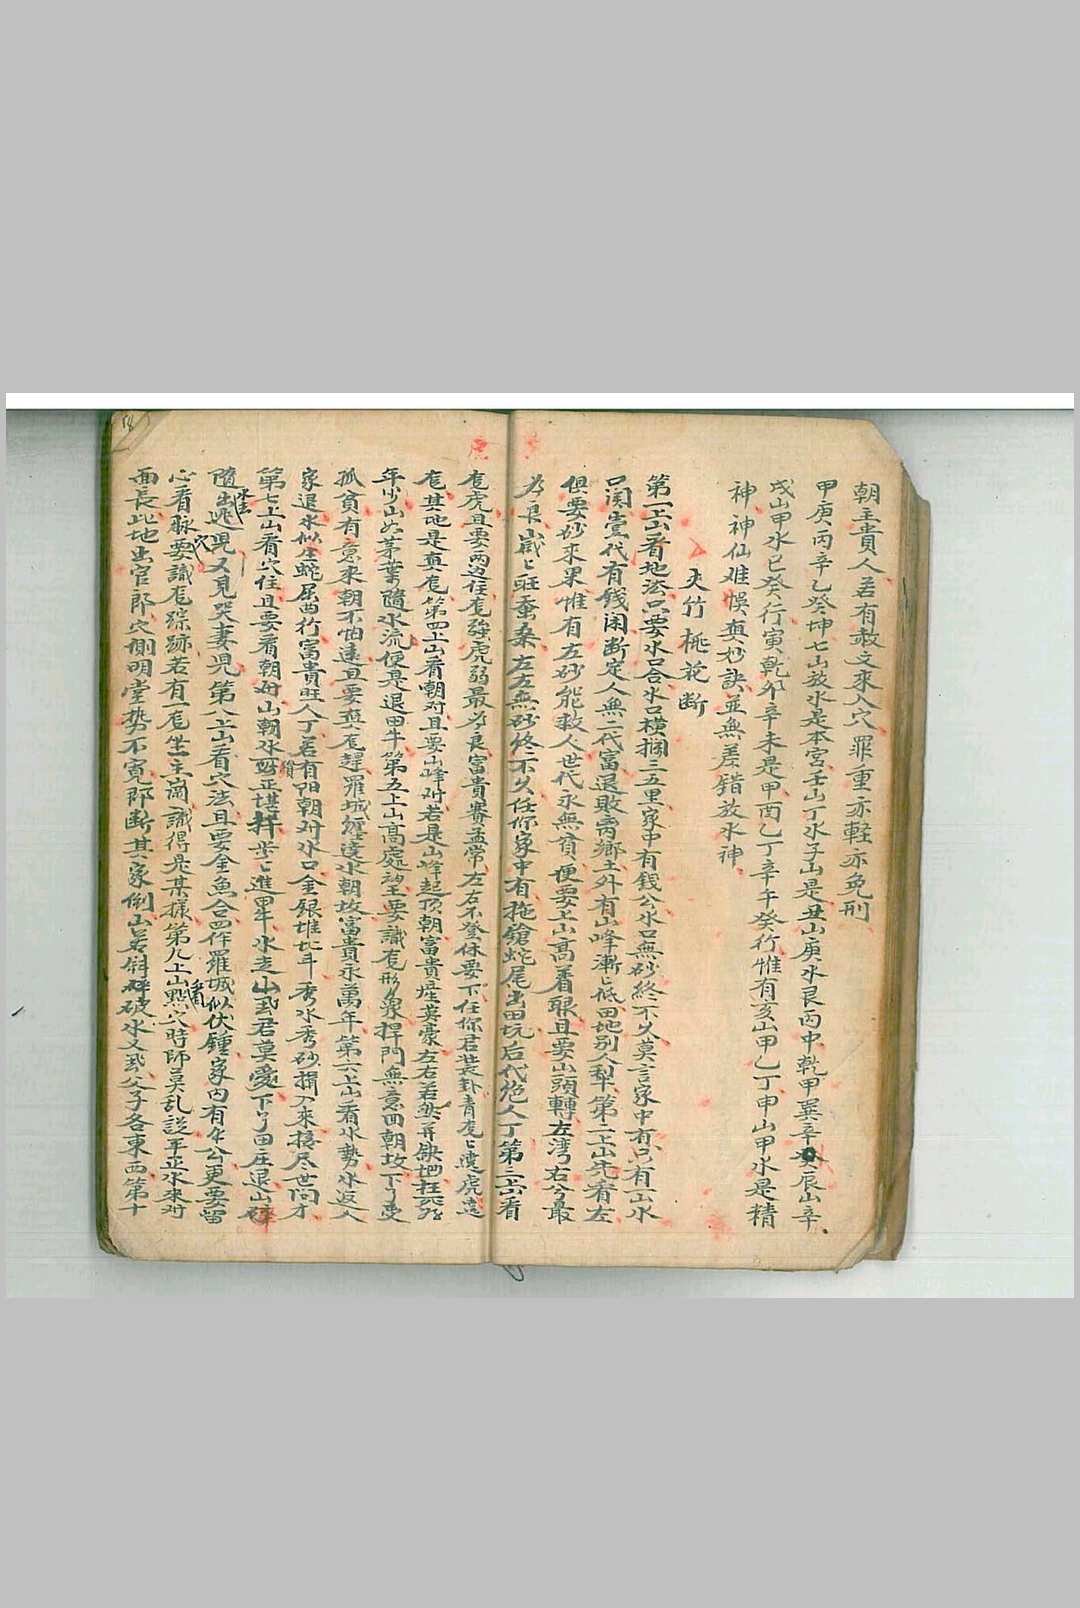 朝主貴人若有赦文來入穴罪重亦軽亦免刑
甲庚丙辛乙癸坤七山放水是本宮壬山丁水子山是丑山庚水艮丙中乾甲巽辛癸辰山辛
戌山甲水巳癸行寅乾夘辛未是甲酉乙丁辛午癸行惟有亥山甲乙丁申山甲水是精
神神仙难悞真妙訣並無差錯放水神
夫竹桃花断
第一上山看地法只要水口合水口橫攔三五里家中有錢公水口無砂終不久莫言家中有只有一山水
口関壹代有錢闲断定人無二代富退敗离鄉土外有山峰漸〻低田地别人犁第二上山先看左
俱要砂來果惟有左砂能救人世代永無貧便要上山高着眼且要山頭轉左湾右分最
为良歲〻旺蚕桑左右無砂終不久任你家中有拖鎗蛇尾出田坑后代绝人丁第三上山看
龙虎且要两边住龙強虎弱最为良富貴賽孟常左右不登休要下任你君裝卦青龙〻遶虎遶
龙其地是真龙第四上山看朝对且要山峰对若是山峰起顶朝富貴產英豪左右若無并缺
年少山如茅葉隨水流便是退田牛第五上山高處望要識龙形象捍門無意回朝坟下了受
孤貧有意来朝不怕遠且要真龙趕羅城纏遶水朝坟富貴永萬年第六上山看水勢水返人
家退水似生蛇屈曲行富貴旺人丁若有阳朝对水口金銀堆北斗秀水秀砂捐入來積尽世间才
第七上山看穴住且要看朝对山朝水对正堪扦步〻進田牛水走山飛君莫愛下了田庄退山碎
隨水出逃児又見哭妻児第八上山看穴法且要金魚合四作羅城似伏鍾家内有午公更要留
心看脉穴要識龙踪跡若有一龙坐主岡識得是某樣第九上山點穴時師莫乱説平正水來对
面長此地出官郎穴側明堂势不寬即断其家倒山若斜碎破水又飛父子各東西第十